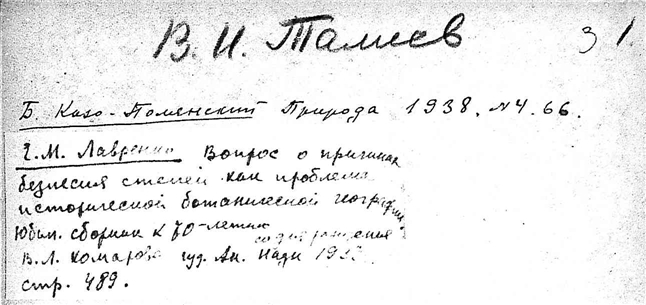 В. И. Талиев 31.
Б. Козо-Полянский Природа 1938. №4. 66.
Е.М. Лавренко Вопрос о причинах
безлесия степей как проблема
исторической ботанической географии.
Юбил. сборник к 70-летию со дня рождения
В.Л. Комарова Ак. Наук
стр. 489.